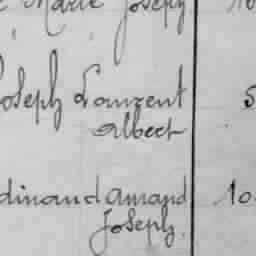 Marie Joseph 10
Joseph Laurent 5
Albert
dinand Amand 10
Joseph.